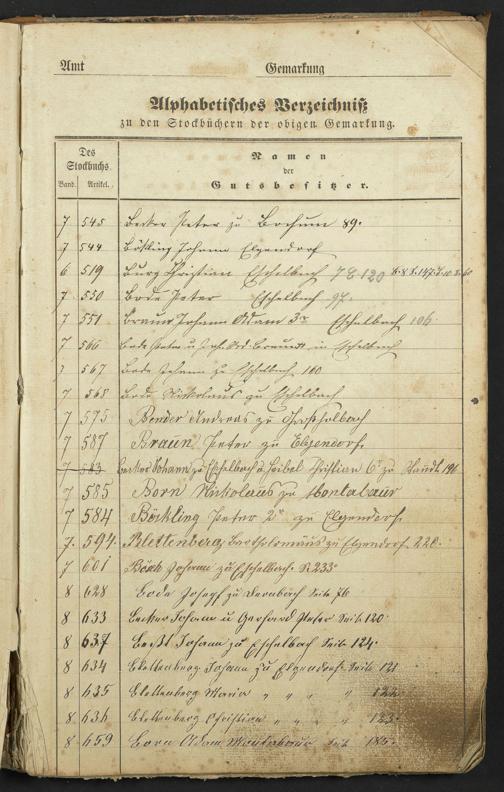 Amt Gemarkung
Alphabetisches Verzeichniß
zu den Stockbüchern der obigen Gemarkung.
Des
Stockbuchs
Band. Artikel.
Namen
der
Gutsbesitzer.
7 545 Becker Peter zu Bochum 89.
7 544 Bökling Johann Elgendorf
6 519 Burg Christian Eschelbach 78 120
7 550 Bode Peter Eschelbach 97.
7 551 Braun Johann Adam 3r Eschelbach 106.
7 566 Bode Peter u. in Eschelbach
7 567 Bode Johann zu Eschelbach 160
7 568 Bode Nikolaus zu Eschelbach
7 575 Bender Andreas zu Großholbach
7 587 Braun Peter zu Elgendorf.
7 583 Becker Johann zu Eschelbach u. Heibel Christian 6r zu
7 585 Born Nickolaus zu Montabaur
7 584 Böckling Peter 2r zu Elgendorf.
7. 594. Blettenberg Bartholomäus zu Elgendorf. 220.
7 601 Johann zu Eschelbach. S. 233.
8 628 Bode Joseph zu Dernbach Seite 76
8 633 Becker Johann u Gerhard Peter Seite 120
8 637 Johann zu Eschelbach Seite 124.
8 634 Blettenberg Johann zu Elgendorf Seite 121
8 635 Blettenberg Maria " " " " 122
8 636 Blettenberg Christian " " " " 123.
8 659 Born Adam Montabaur Seite 185.